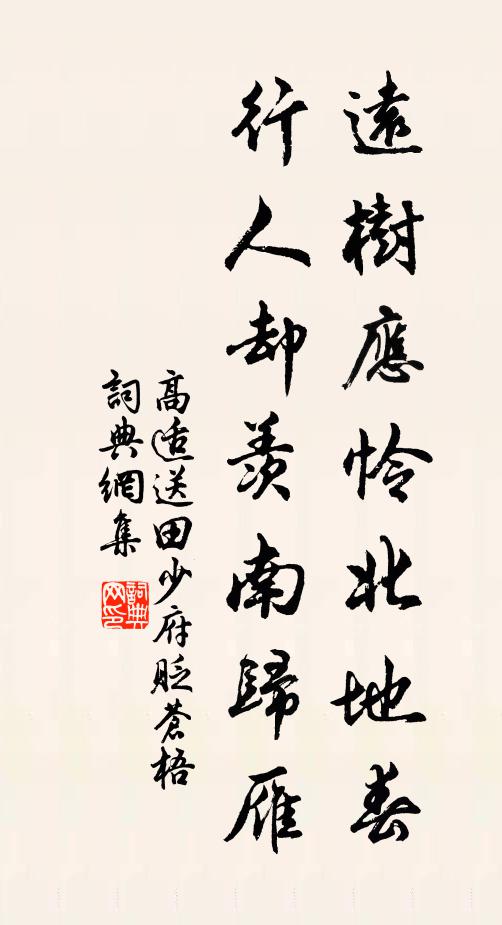 遠樹應怜北地春
行人却羨南歸雁
高适送田少府貶蒼梧
詞典網集
詞典網印